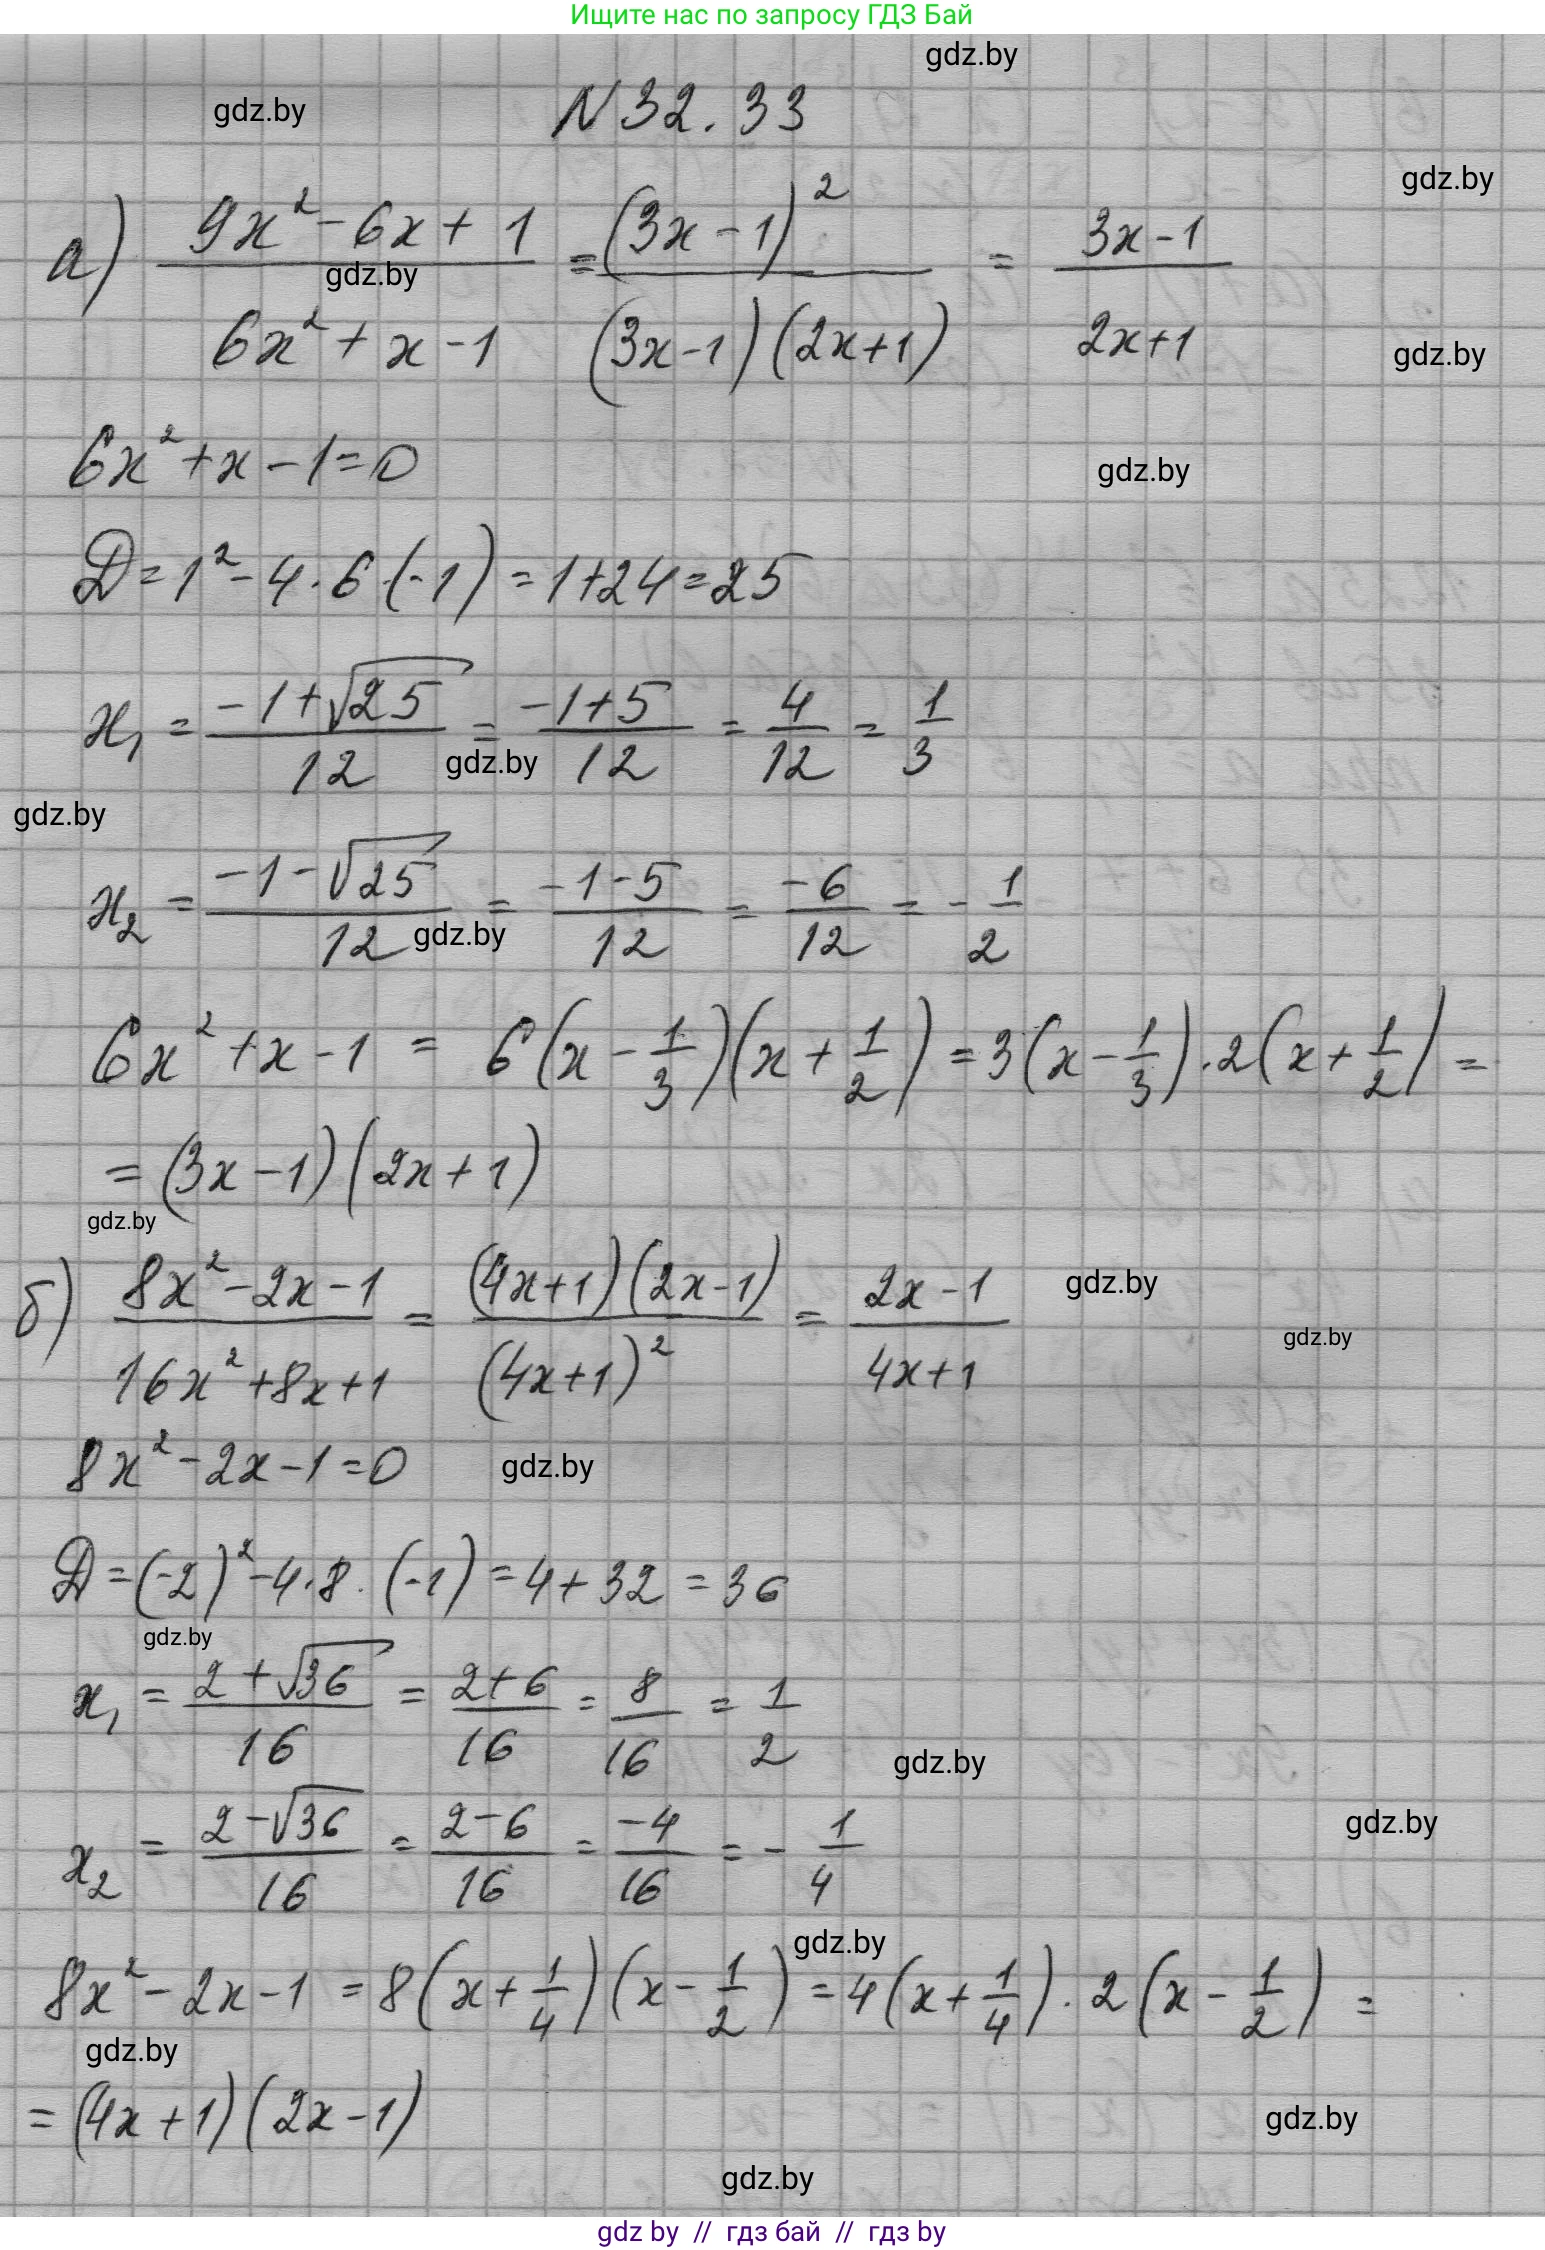 Ищите нас по запросу ГДЗ Бай
gdz.by
gdz.by
N 32.33
gdz.by
а) (9x² - 6x + 1)/(6x² + x - 1) = (3x - 1)²/((3x - 1)(2x + 1)) = (3x - 1)/(2x + 1)
gdz.by
gdz.by
6x² + x - 1 = 0
gdz.by
D = 1² - 4 · 6 · (-1) = 1 + 24 = 25
x₁ = (-1 + √25)/12 = (-1 + 5)/12 = 4/12 = 1/3
gdz.by
gdz.by
x₂ = (-1 - √25)/12 = (-1 - 5)/12 = -6/12 = -1/2
gdz.by
6x² + x - 1 = 6(x - 1/3)(x + 1/2) = 3(x - 1/3) · 2(x + 1/2) =
= (3x - 1)(2x + 1)
gdz.by
б) (8x² - 2x - 1)/(16x² + 8x + 1) = ((4x + 1)(2x - 1))/(4x + 1)² = (2x - 1)/(4x + 1)
gdz.by
gdz.by
8x² - 2x - 1 = 0
gdz.by
D = (-2)² - 4 · 8 · (-1) = 4 + 32 = 36
gdz.by
x₁ = (2 + √36)/16 = (2 + 6)/16 = 8/16 = 1/2
gdz.by
x₂ = (2 - √36)/16 = (2 - 6)/16 = -4/16 = -1/4
gdz.by
gdz.by
8x² - 2x - 1 = 8(x + 1/4)(x - 1/2) = 4(x + 1/4) · 2(x - 1/2) =
gdz.by
= (4x + 1)(2x - 1)
gdz.by
gdz.by
gdz by // гдз бай // гдз by